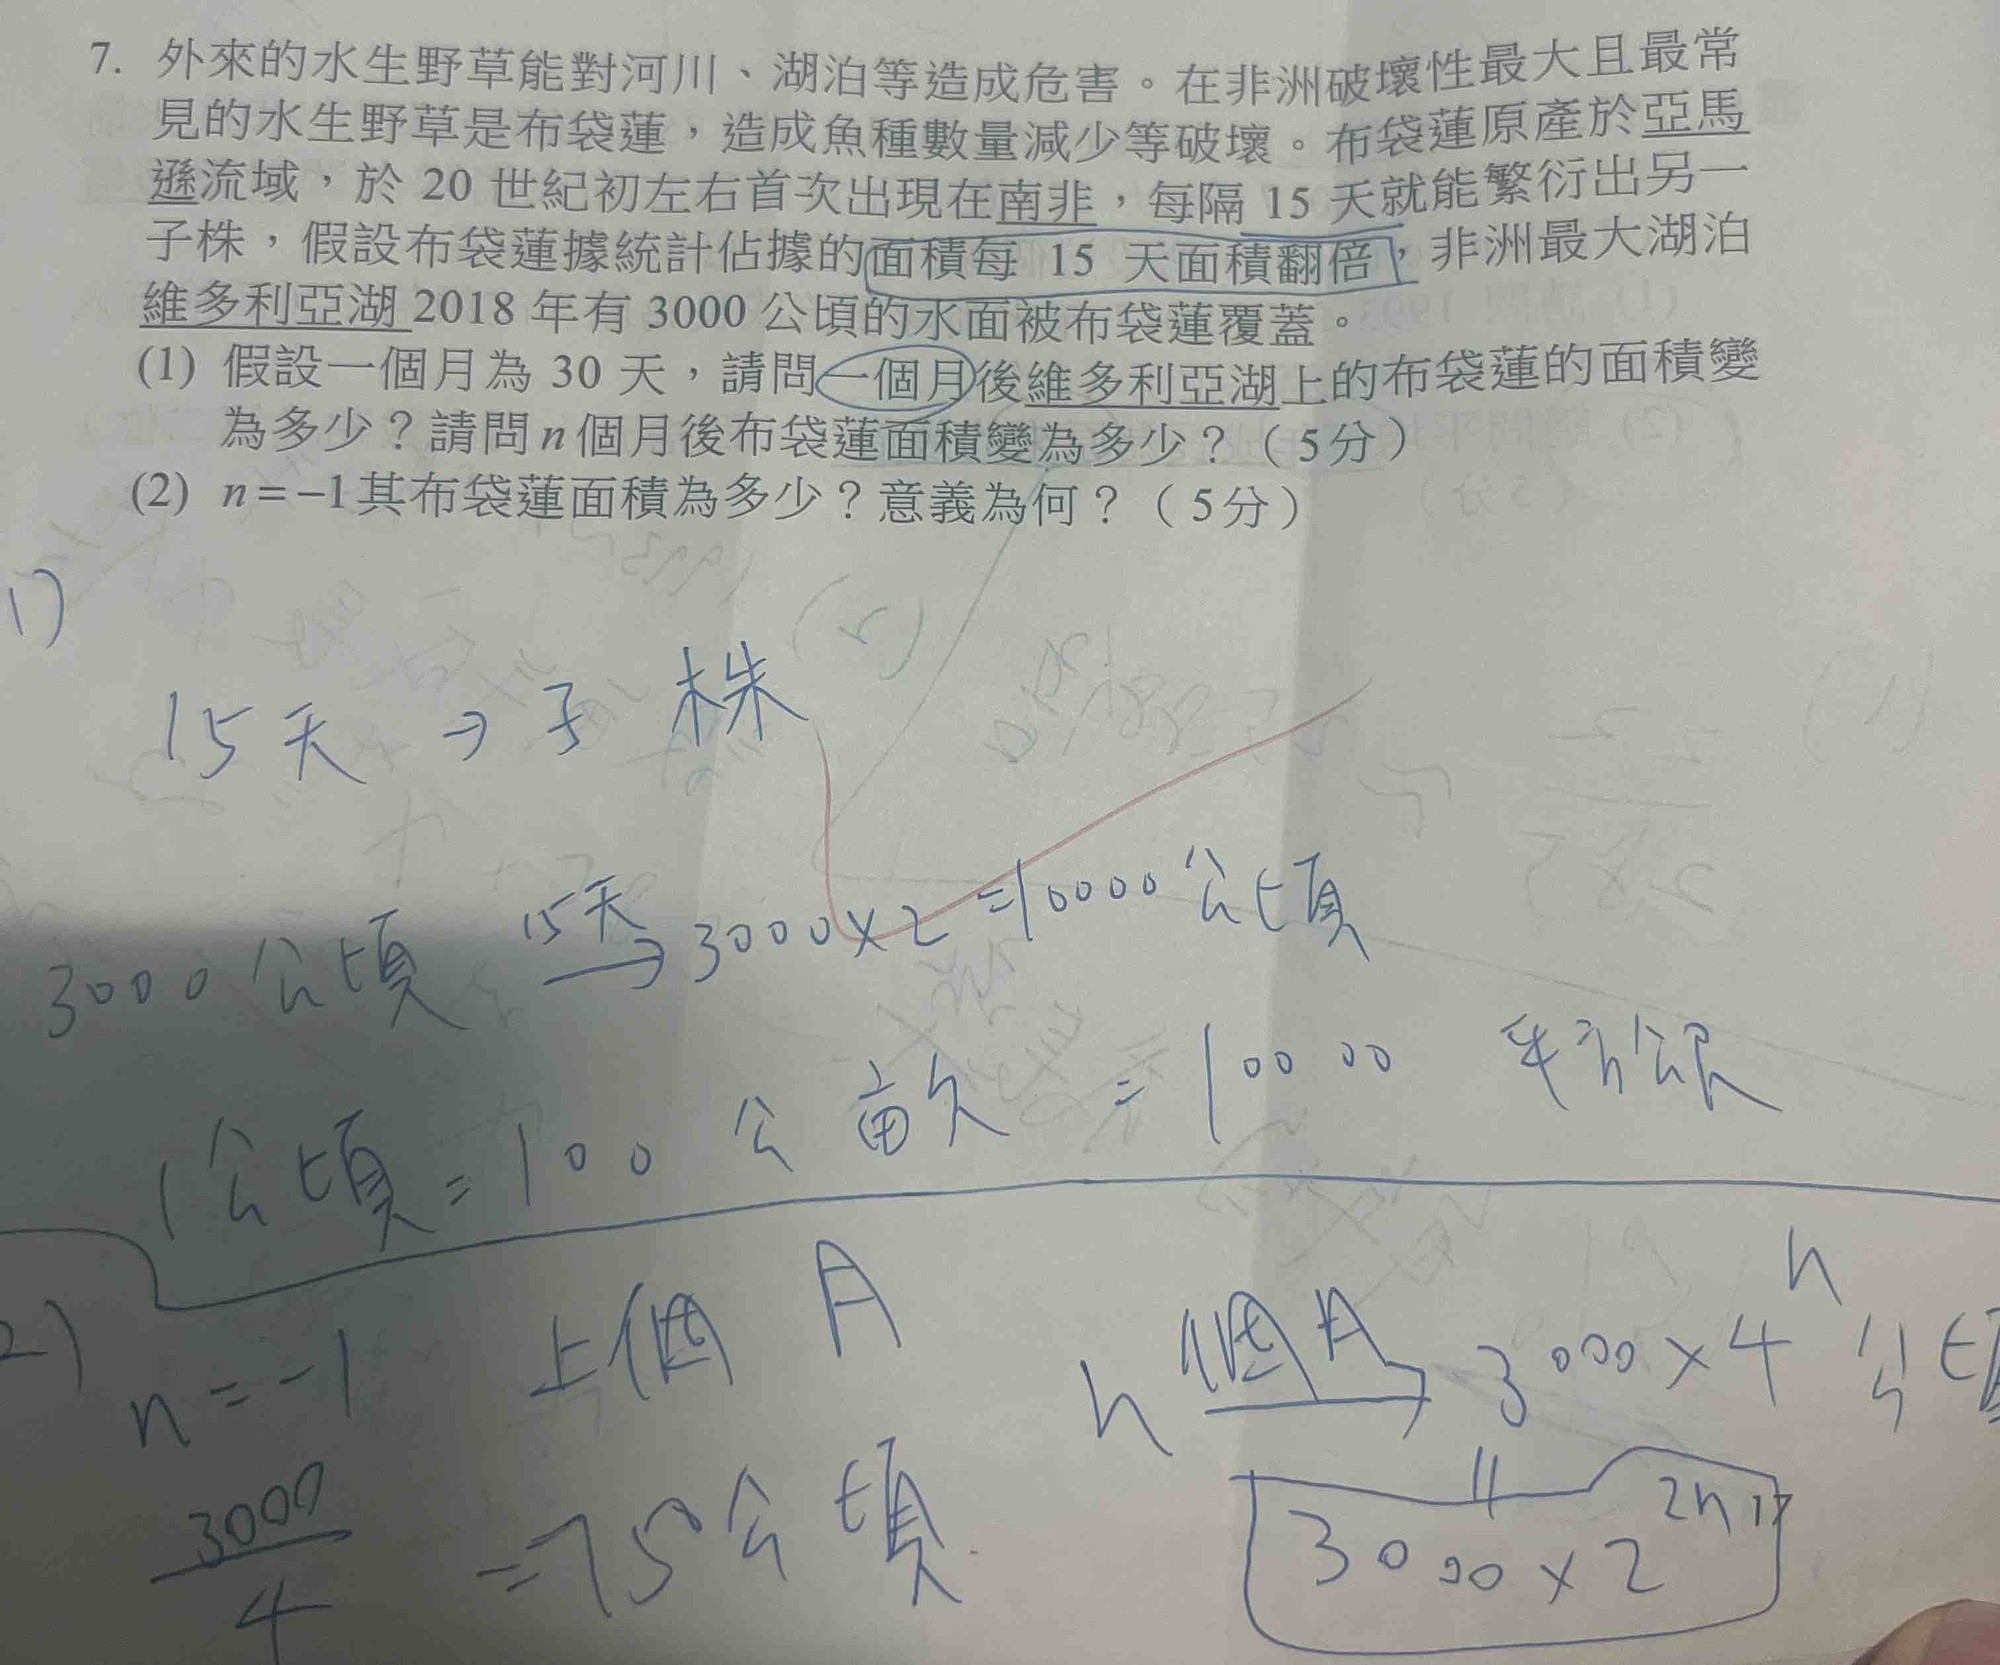 7. 外來的水生野草能對河川、湖泊等造成危害。在非洲破壞性最大且最常
見的水生野草是布袋蓮，造成魚種數量減少等破壞。布袋蓮原產於亞馬
遜流域，於 20 世紀初左右首次出現在南非，每隔 15 天就能繁衍出另一
子株，假設布袋蓮據統計佔據的面積每 15 天面積翻倍，非洲最大湖泊
維多利亞湖 2018 年有 3000 公頃的水面被布袋蓮覆蓋。
(1) 假設一個月為 30 天，請問一個月後維多利亞湖上的布袋蓮的面積變
為多少？請問 n 個月後布袋蓮面積變為多少？（5分）
(2) n=-1其布袋蓮面積為多少？意義為何？（5分）
1)
15天 → 子株
3000公頃 15天→ 3000×2=10000公頃
1公頃=100公畝=10000平方公尺
2) n=-1 上個月
3000/4 =750公頃
n個月→ 3000×4^n 公頃
3000×2^2n